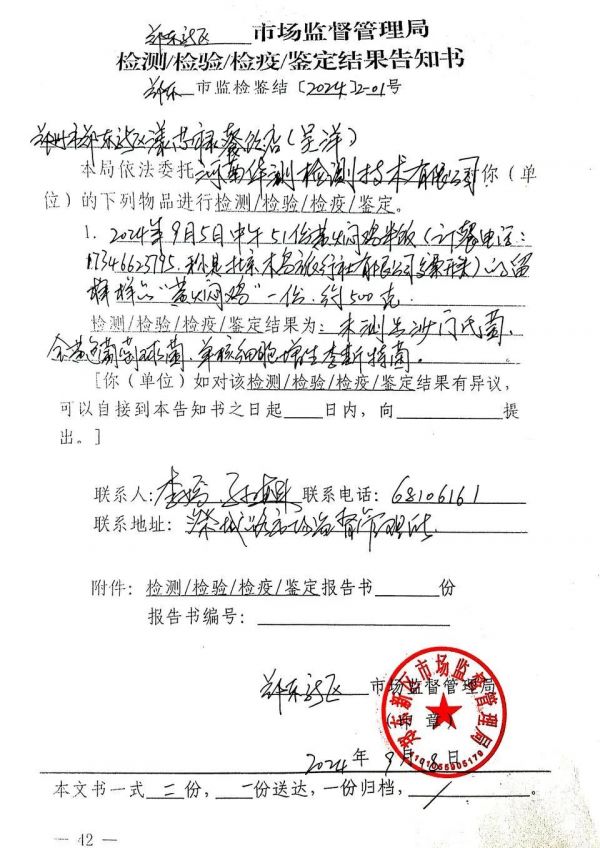 郑东新区 市场监督管理局
检测/检验/检疫/鉴定结果告知书
郑东 市监检鉴结〔2024〕2-01号
郑州市郑东新区漾芯禄馨饭店(吴洋)
本局依法委托 河南华测检测技术有限公司 你(单
位)的下列物品进行检测/检验/检疫/鉴定。
1. 2024年9月5日中午51份黄焖鸡米饭(订餐电话:
17346623795.称是北京木鸟旅行社有限公司)的留
样样品"黄焖鸡"一份.约500克
检测/检验/检疫/鉴定结果为: 未测出沙门氏菌.
金黄色葡萄球菌.单核细胞增生李斯特菌。
[你(单位)如对该检测/检验/检疫/鉴定结果有异议,
可以自接到本告知书之日起____日内,向________提
出。]
联系人: 李 联系电话: 68106161
联系地址: 路市场监督管理所
附件: 检测/检验/检疫/鉴定报告书______份
报告书编号: ______________
郑东新区 市场监督管理局
(印章)
2024年9月18日
郑东新区市场监督管理局
4101055905179
本文书一式 二 份, 一 份送达,一份归档, /
— 42 —